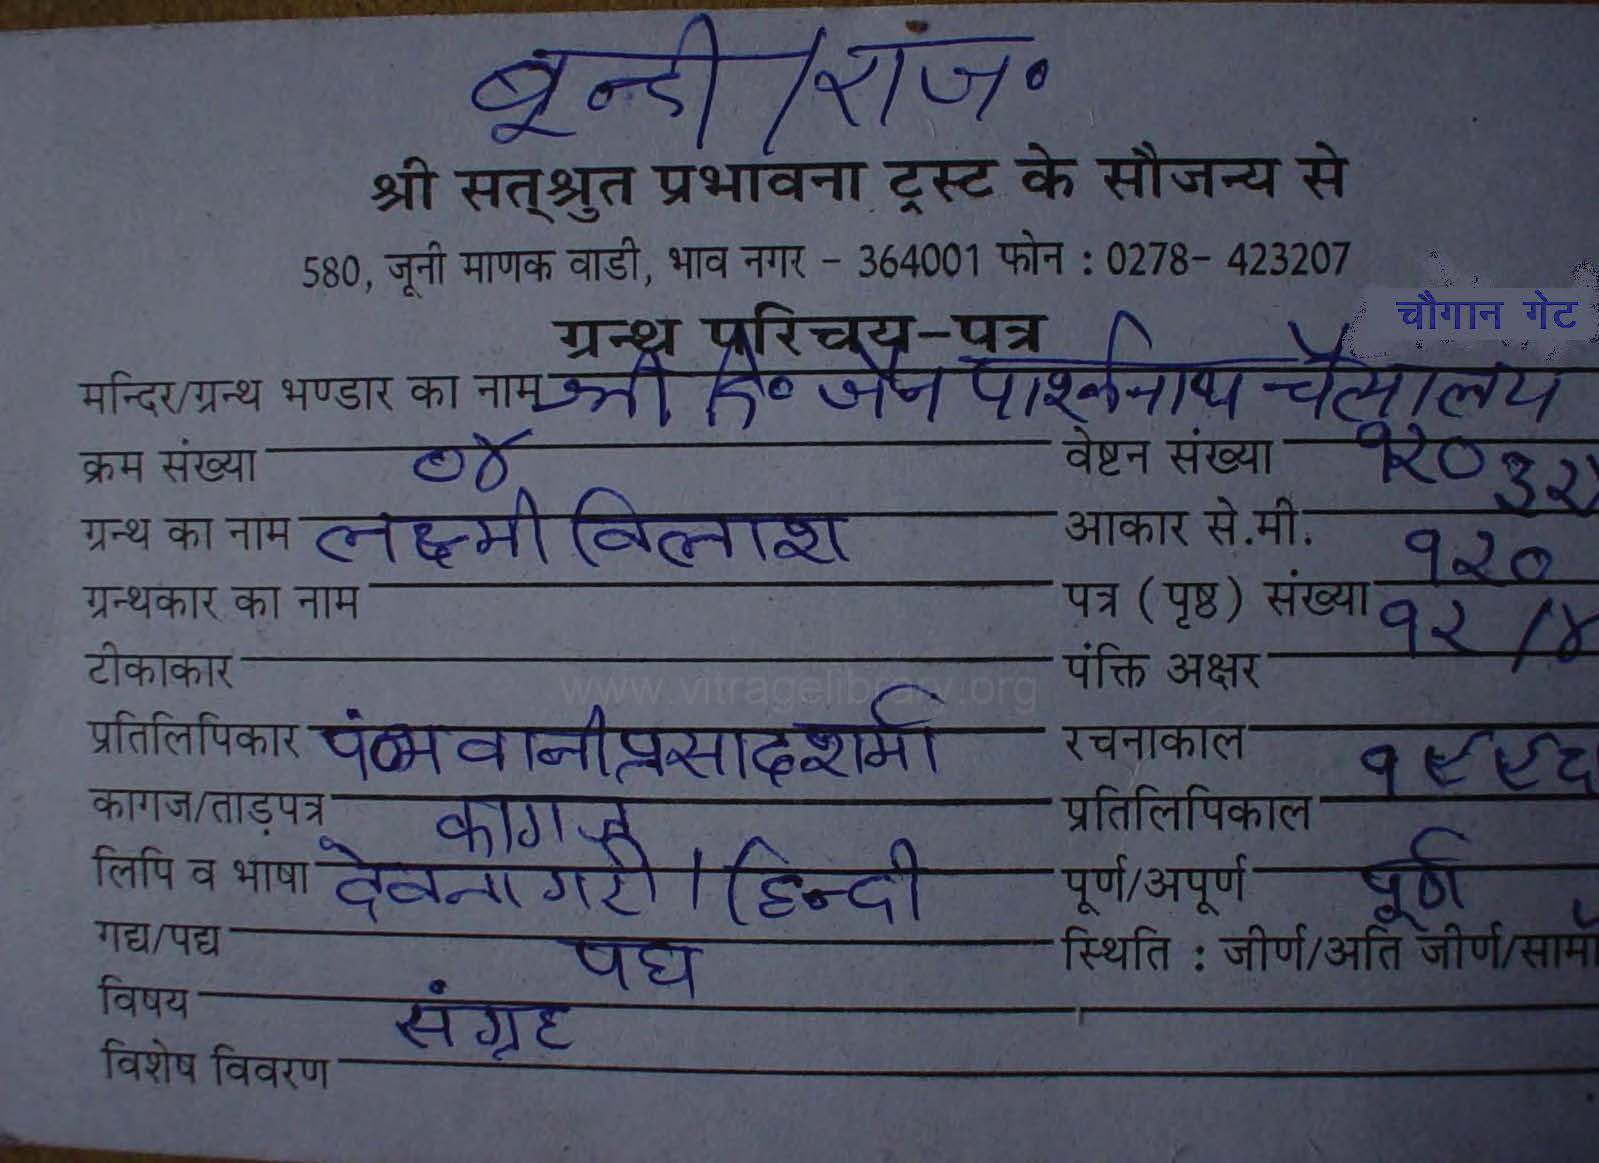 बून्दी /राज॰
श्री सत्‌श्रुत प्रभावना ट्रस्ट के सौजन्य से
580, जूनी माणक वाडी, भाव नगर - 364001 फोन : 0278- 423207
चौगान गेट
ग्रन्थ परिचय-पत्र
मन्दिर/ग्रन्थ भण्डार का नाम श्री दि॰ जैन पार्श्वनाथ चैत्यालय
क्रम संख्या ०४ वेष्टन संख्या १२०
ग्रन्थ का नाम लक्ष्मी विलाश आकार से.मी.
ग्रन्थकार का नाम पत्र (पृष्ठ) संख्या १२०
टीकाकार पंक्ति अक्षर १२ /४
www.vitragelibrary.org
प्रतिलिपिकार पं॰ भवानीप्रसाद शर्मा रचनाकाल
कागज/ताड़पत्र कागज प्रतिलिपिकाल १९९६
लिपि व भाषा देवनागरी / हिन्दी पूर्ण/अपूर्ण पूर्ण
गद्य/पद्य पद्य स्थिति : जीर्ण/अति जीर्ण/सामा
विषय संग्रह
विशेष विवरण